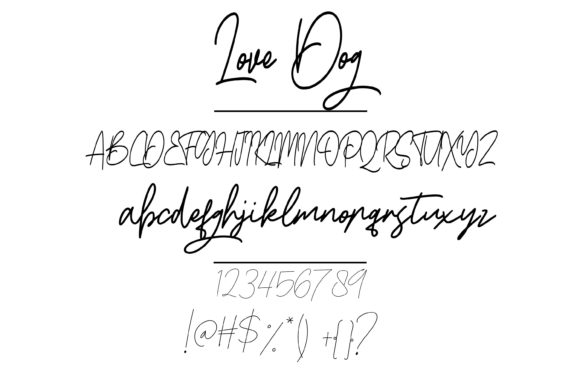 Love Dog
ABCDEFGHJIKLMNOPQRSTUXYZ
abcdefghjiklmnopqrstuxyz
123456789
!@#$%*() +{}?